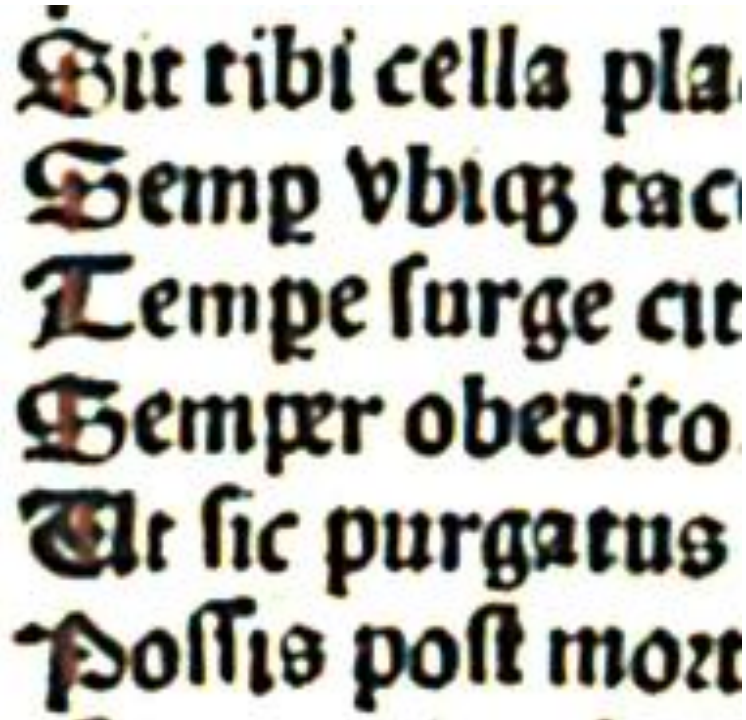 Sit tibi cella pla
Semꝑ vbiqꝫ tac
Temꝑe ſurge cit
Semper obedito
Ut ſic purgatus
Poſſis poſt moꝛt